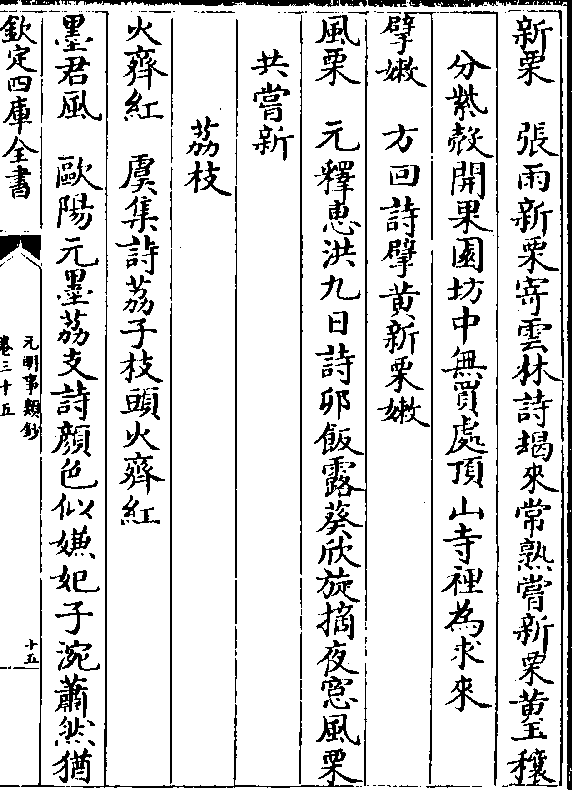 新栗　張雨新栗寄雲林詩朅來常熟嘗新栗黄玉穰
分紫殻開果園坊中無買處頂山寺裡為求來
擘嫩　方回詩擘黄新栗嫩
風栗　元釋恵洪九日詩卯飯露葵欣旋摘夜窓風栗
共嘗新
荔枝
火齊紅　虞集詩荔子枝頭火齊紅
墨君風　歐陽元墨荔支詩顔色似嫌妃子涴蕭然猶
欽定四庫全書
元明事類鈔
卷三十五
十五